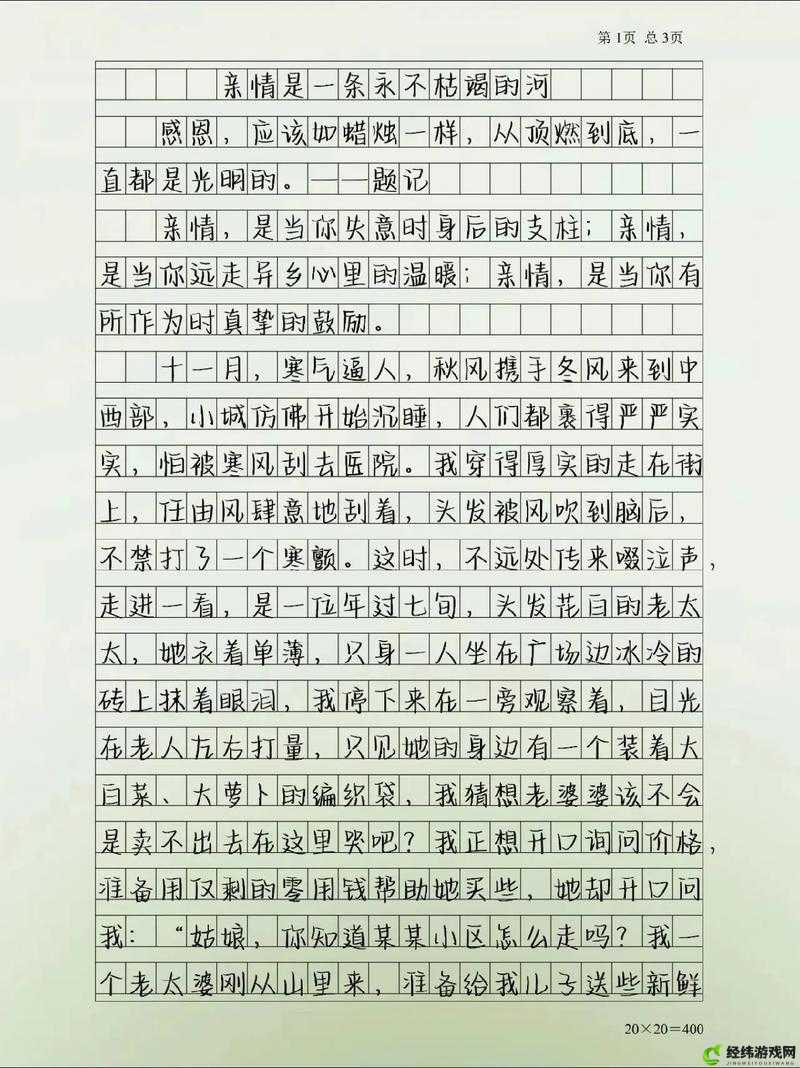 第1页 总3页
亲情是一条永不枯竭的河
感恩，应该如蜡烛一样，从顶燃到底，一
直都是光明的。——题记
亲情，是当你失意时身后的支柱；亲情，
是当你远走异乡心里的温暖；亲情，是当你有
所作为时真挚的鼓励。
十一月，寒气逼人，秋风携手冬风来到中
西部，小城仿佛开始沉睡，人们都裹得严严实
实，怕被寒风刮去医院。我穿得厚实的走在街
上，任由风肆意地刮着，头发被风吹到脑后，
不禁打了一个寒颤。这时，不远处传来啜泣声，
走进一看，是一位年过七旬，头发花白的老太
太，她衣着单薄，只身一人坐在广场边冰冷的
砖上抹着眼泪，我停下来在一旁观察着，目光
在老人左右打量，只见她的身边有一个装着大
白菜、大萝卜的编织袋，我猜想老婆婆该不会
是卖不出去在这里哭吧？我正想开口询问价格，
准备用仅剩的零用钱帮助她买些，她却开口问
我：“姑娘，你知道某某小区怎么走吗？我一
个老太婆刚从山里来，准备给我儿子送些新鲜
20×20=400
经纬游戏网
JINGWEIYOUXIWANG